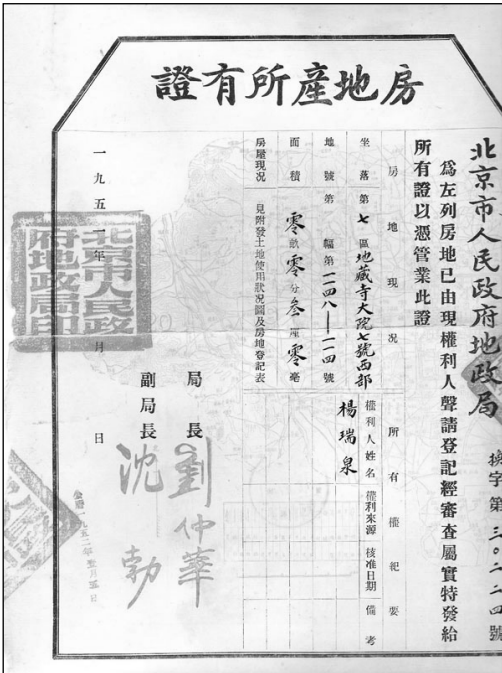 房地產所有證
北京市人民政府地政局
換字第三〇二二四號
為左列房地已由現權利人聲請登記經審查屬實特發給
所有證以憑管業此證
房地現況
坐落 第七區地藏寺大院七號西部
地號 第 幅第一二四八—一一四號
面積 零畝零分叁厘零毫
房屋現況 見附發土地使用狀況圖及房地登記表
所有權記要
權利人姓名 權利來源 核准日期 備考
楊瑞泉
局長 劉仲華
副局長 沈勃
一九五一年 月 日
北京市人民政
府地政局印